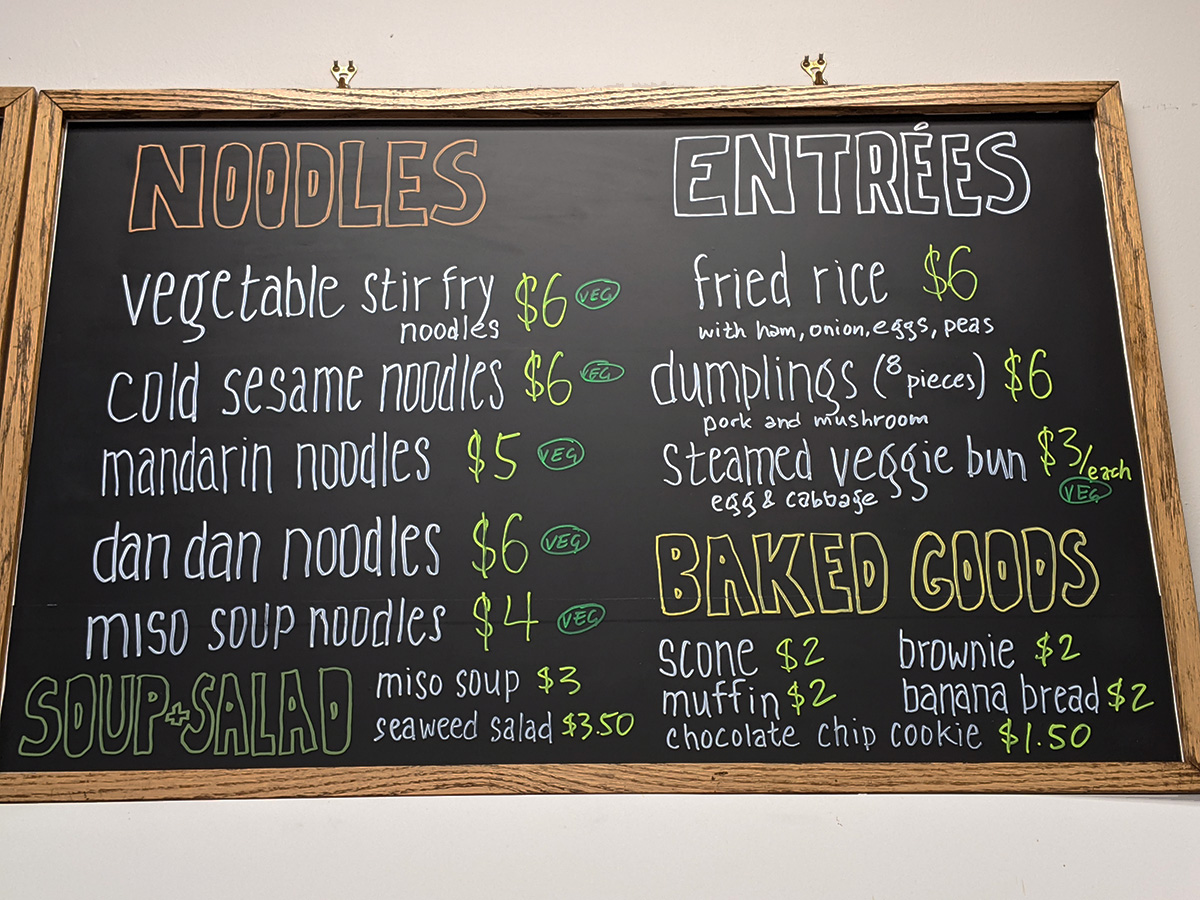 NOODLES
vegetable stir fry $6 VEG
noodles
cold sesame noodles $6 VEG
mandarin noodles $5 VEG
dan dan noodles $6 VEG
miso soup noodles $4 VEG
SOUP + SALAD
miso soup $3
seaweed salad $3.50
ENTRÉES
fried rice $6
with ham, onion, eggs, peas
dumplings (8 pieces) $6
pork and mushroom
steamed veggie bun $3/each
egg & cabbage VEG
BAKED GOODS
scone $2 brownie $2
muffin $2 banana bread $2
chocolate chip cookie $1.50